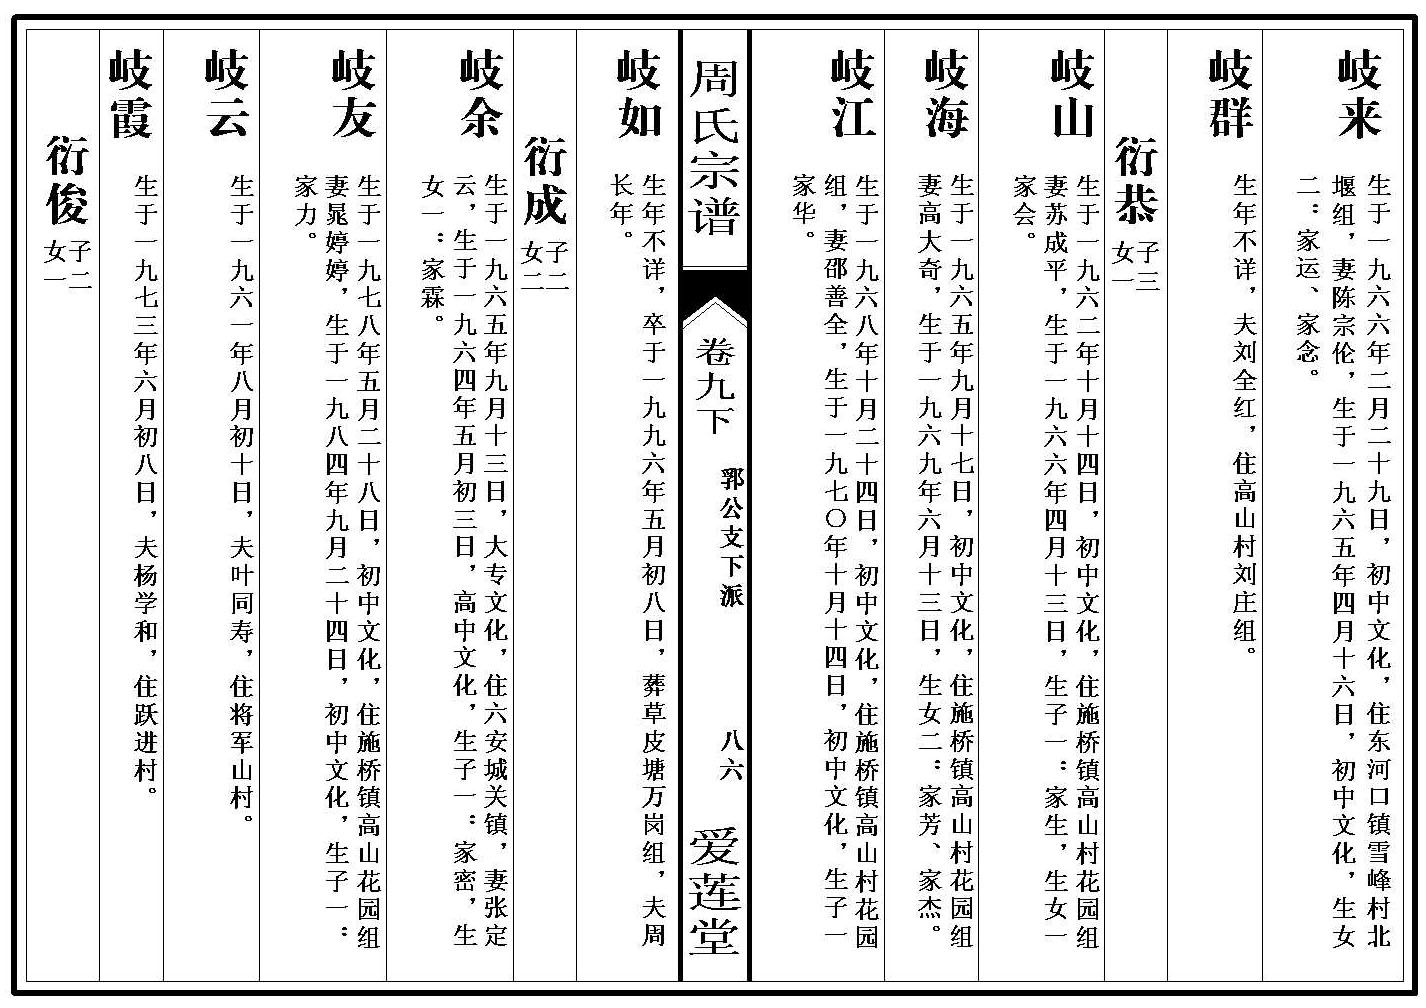 岐来
生于一九六六年二月二十九日，初中文化，住东河口镇雪峰村北
堰组，妻陈宗伦，生于一九六五年四月十六日，初中文化，生女
二：家运、家念。
岐群
生年不详，夫刘全红，住高山村刘庄组。
衍恭
子三
女一
岐山
生于一九六二年十月十四日，初中文化，住施桥镇高山村花园组
妻苏成平，生于一九六六年四月十三日，生子一：家生，生女一
家会。
岐海
生于一九六五年九月十七日，初中文化，住施桥镇高山村花园组
妻高大奇，生于一九六九年六月十三日，生女二：家芳、家杰。
岐江
生于一九六八年十月二十四日，初中文化，住施桥镇高山村花园
组，妻邵善全，生于一九七〇年十月十四日，初中文化，生子一
家华。
周氏宗谱
卷九下
郭公支下派
八六
爱莲堂
岐如
生年不详，卒于一九九六年五月初八日，葬草皮塘万岗组，夫周
长年。
衍成
子二
女二
岐余
生于一九六五年九月十三日，大专文化，住六安城关镇，妻张定
云，生于一九六四年五月初三日，高中文化，生子一：家密，生
女一：家霖。
岐友
生于一九七八年五月二十八日，初中文化，住施桥镇高山花园组
妻晁婷婷，生于一九八四年九月二十四日，初中文化，生子一：
家力。
岐云
生于一九六一年八月初十日，夫叶同寿，住将军山村。
岐霞
生于一九七三年六月初八日，夫杨学和，住跃进村。
衍俊
子二
女一